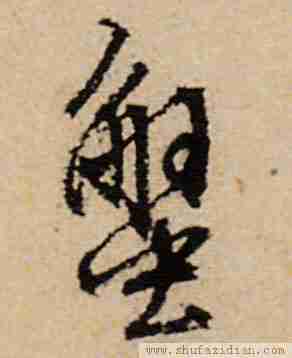 蟹
www.shufazidian.com